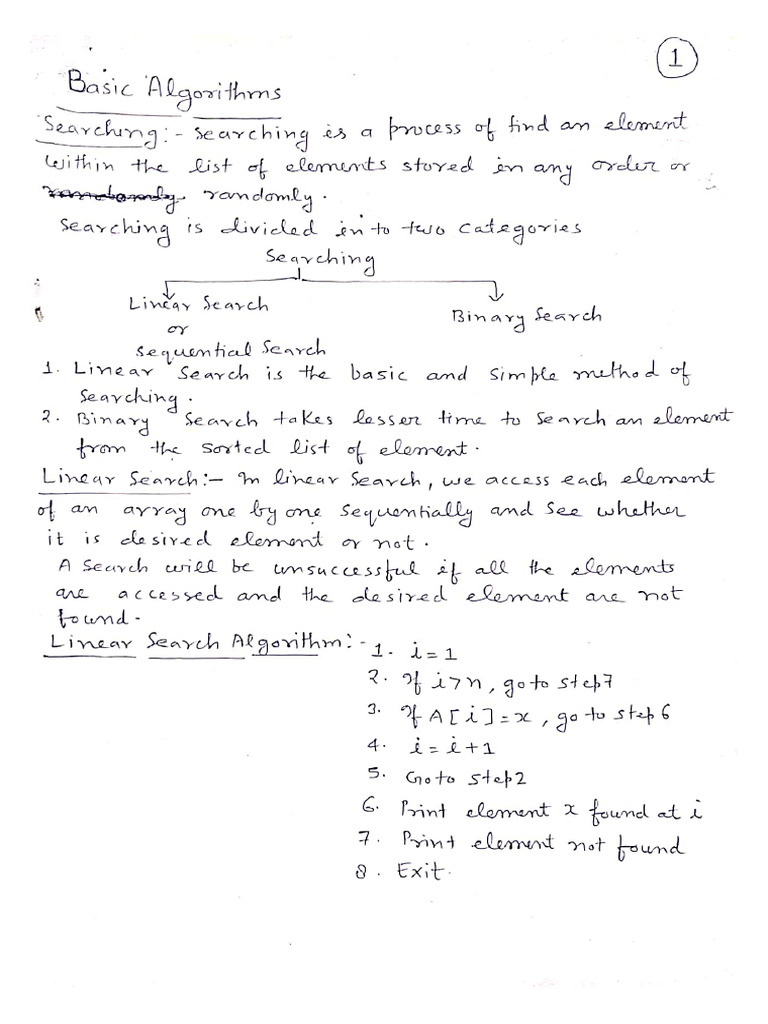 1
Basic Algorithms
Searching:- Searching is a process of find an element
within the list of elements stored in any order or
randomly randomly.
Searching is divided in to two categories
Searching
Linear Search
Binary Search
or
Sequential Search
1. Linear Search is the basic and simple method of
searching.
2. Binary Search takes lesser time to search an element
from the sorted list of element.
Linear Search:- In linear search, we access each element
of an array one by one sequentially and see whether
it is desired element or not.
A search will be unsuccessful if all the elements
are accessed and the desired element are not
found.
Linear Search Algorithm:-
1. i=1
2. If i>n, go to step7
3. If A[i]=x, go to step 6
4. i=i+1
5. Go to step2
6. Print element x found at i
7. Print element not found
8. Exit.